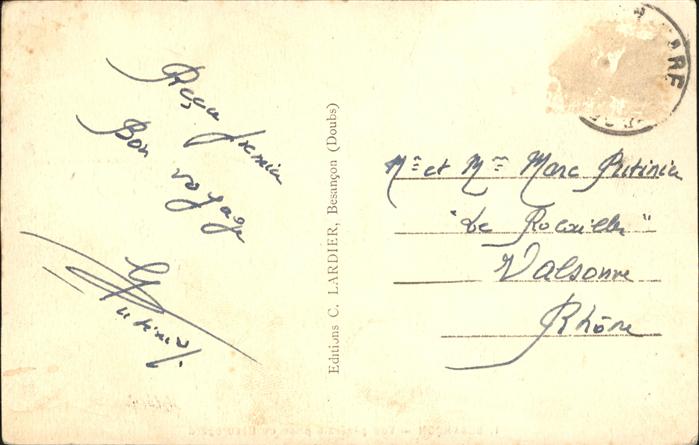 Reçu premier
Bon voyage
Editions C. LARDIER, Besançon (Doubs)
Mr et Mme Marc Putinier
"Le Rocailler"
Valsonne
Rhône